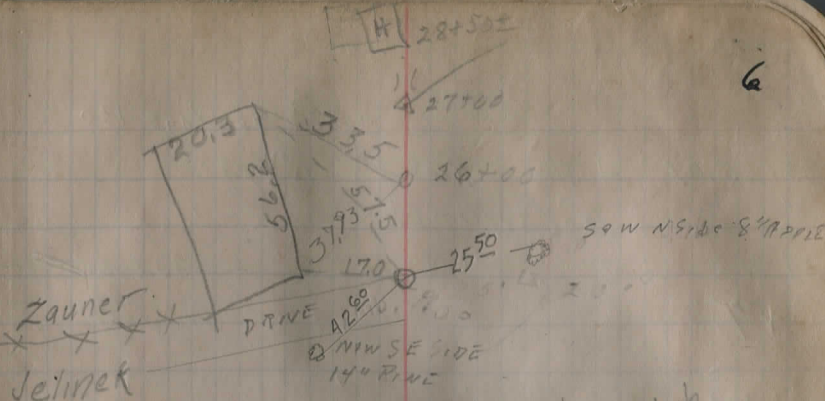 H 28+50±
6
27+00
20.3 33.5
26+00
56.2
57.5
37.93
25 50
S&W N Side 8"
17.0
Zauner
DRIVE
42 60
N&W SE SIDE
14" PINE
Jelinek